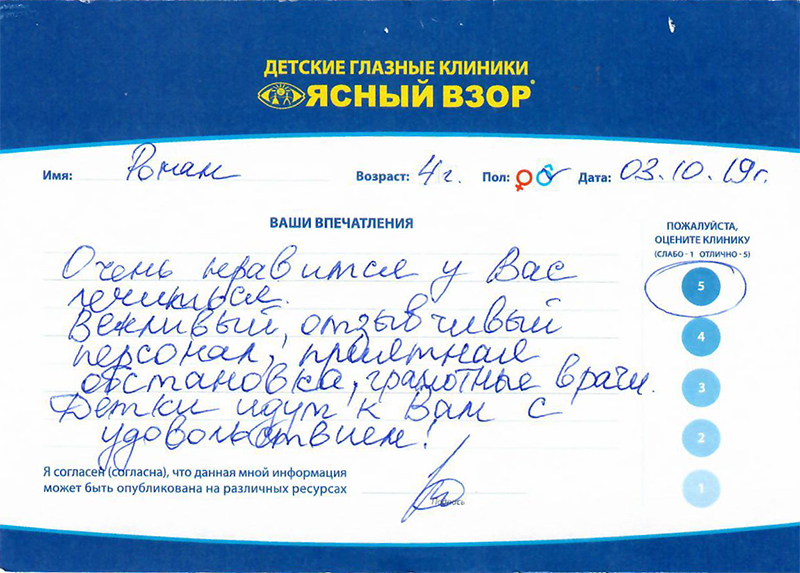 ДЕТСКИЕ ГЛАЗНЫЕ КЛИНИКИ
ЯСНЫЙ ВЗОР®
Имя: Роман Возраст: 4 г. Пол: Дата: 03.10.19г.
ВАШИ ВПЕЧАТЛЕНИЯ
ПОЖАЛУЙСТА,
ОЦЕНИТЕ КЛИНИКУ
(СЛАБО - 1 ОТЛИЧНО - 5)
Очень нравится у Вас
лечиться.
Вежливый, отзывчивый
персонал, приятная
обстановка, грамотные врачи.
Детки идут к Вам с
удовольствием!
5
4
3
2
1
Я согласен (согласна), что данная мной информация
может быть опубликована на различных ресурсах
Подпись